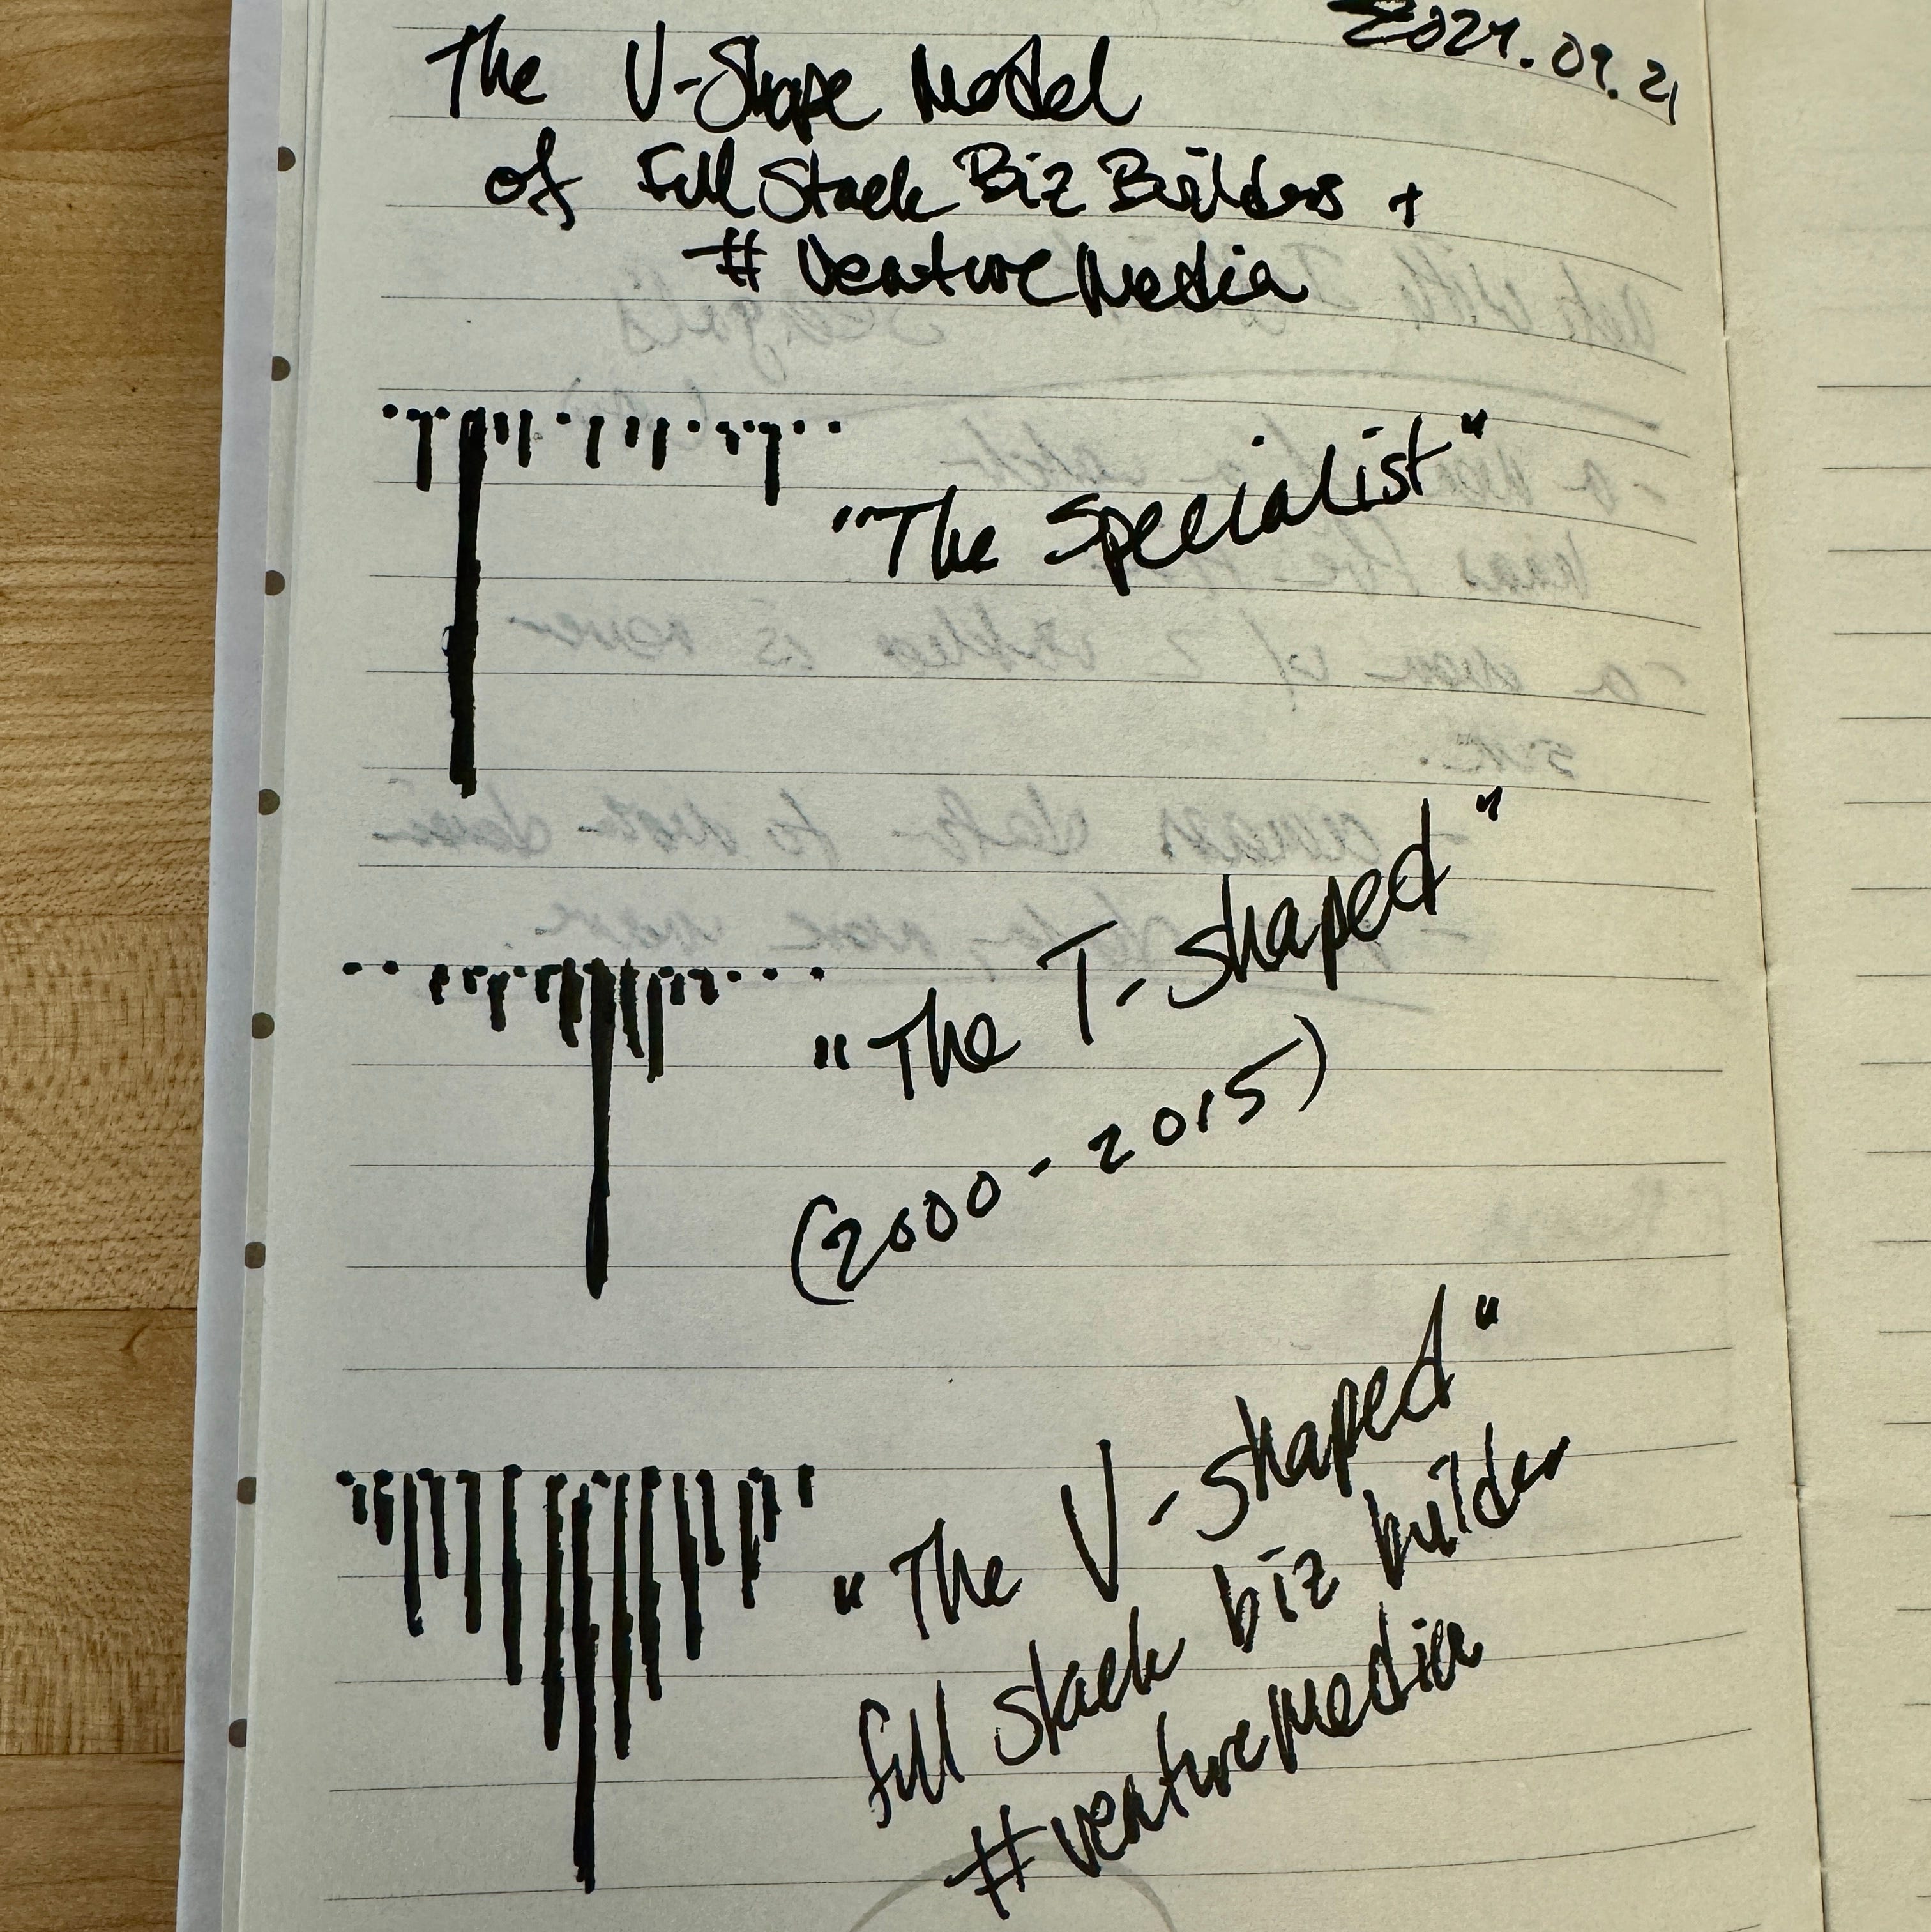 2024.09.21
The V-Shape Model
of Full Stack Biz Builders +
# VentureMedia
"The Specialist"
"The T-shaped"
(2000-2015)
"The V-shaped"
full stack biz builder
#VentureMedia